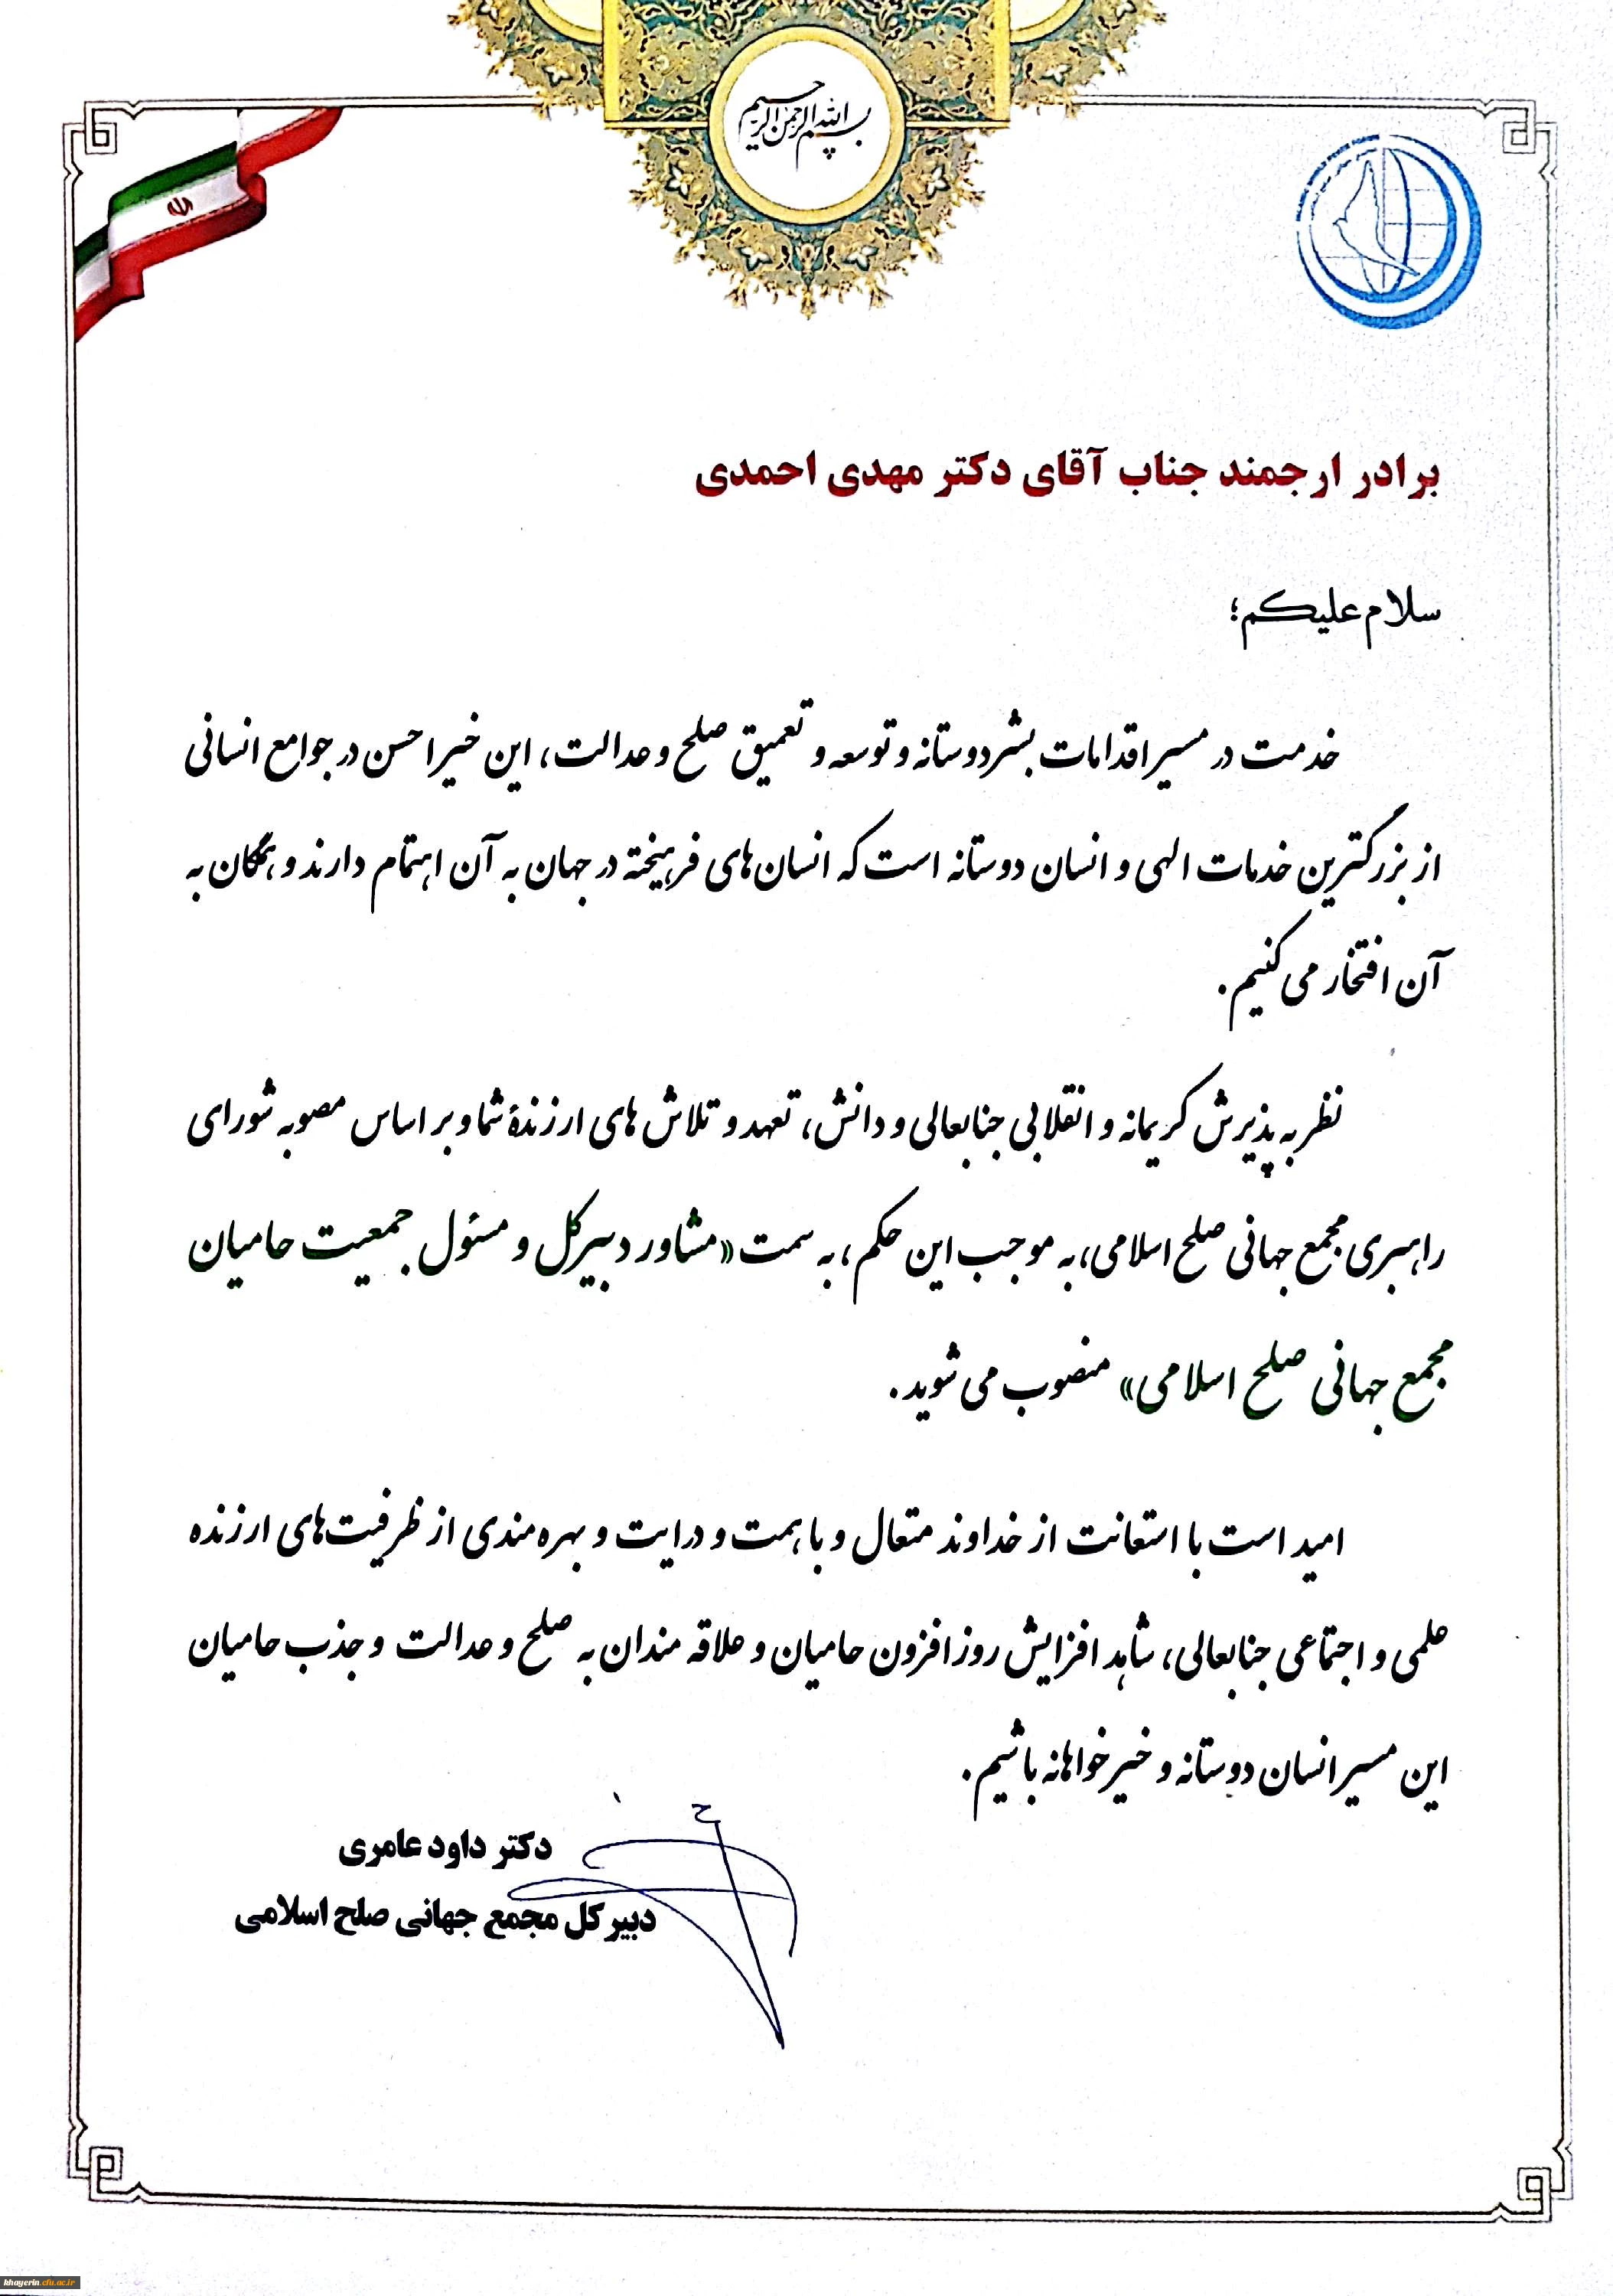 بسم الله الرحمن الرحیم
برادر ارجمند جناب آقای دکتر مهدی احمدی
سلام علیکم؛
خدمت در مسیر اقدامات بشردوستانه و توسعه و تعمیق صلح و عدالت، این خیر احسن در جوامع انسانی
از بزرگترین خدمات الهی و انسان دوستانه است که انسان‌های فرهیخته در جهان به آن اهتمام دارند و همگان به
آن افتخار می کنیم.
نظر به پذیرش کریمانه و انقلابی جنابعالی و دانش، تعهد و تلاش های ارزندهٔ شما و بر اساس مصوبه شورای
راهبری مجمع جهانی صلح اسلامی، به موجب این حکم، به سمت «مشاور دبیرکل و مسئول جمعیت حامیان
مجمع جهانی صلح اسلامی» منصوب می شوید.
امید است با استعانت از خداوند متعال و با همت و درایت و بهره مندی از ظرفیت‌های ارزنده
علمی و اجتماعی جنابعالی، شاهد افزایش روز افزون حامیان و علاقه مندان به صلح و عدالت و جذب حامیان
این مسیر انسان دوستانه و خیرخواهانه باشیم.
دکتر داود عامری
دبیرکل مجمع جهانی صلح اسلامی
khayerin.cfu.ac.ir